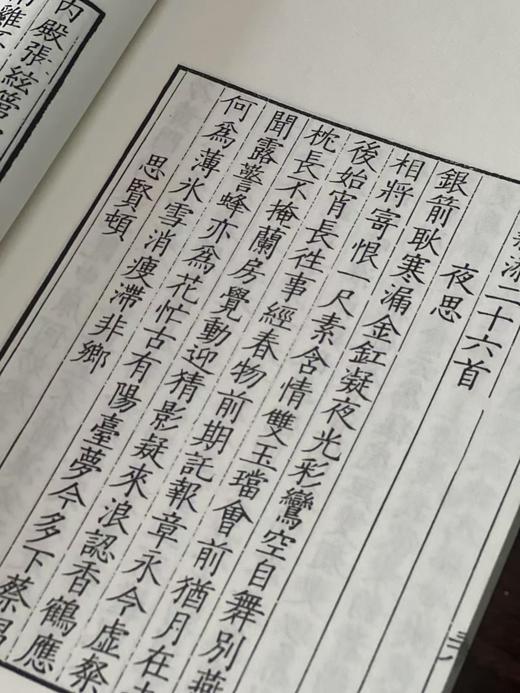 二十六首
夜思
銀箭耿寒漏金釭凝夜光彩鸞空自舞別燕
相將寄恨一尺素含情雙玉璫會前猶月在
後始宵長往事經春物前期託報章永令虛粲
枕長不掩蘭房覺動迎猜影疑來浪認香鶴應
聞露警蜂亦爲花忙古有陽臺夢今多下蔡
何爲薄冰雪消瘦滯非鄉
思賢頓
內殿張絃管
雞